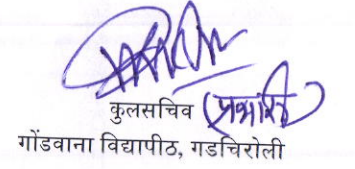 कुलसचिव (प्रभारी)
गोंडवाना विद्यापीठ, गडचिरोली